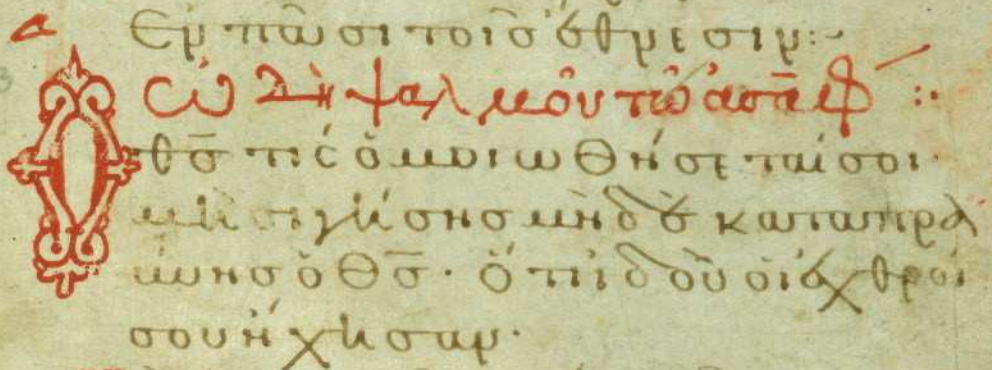 ἐν πᾶσι τοῖς ἔθνεσιν:~
ᾠδὴ ψαλμοῦ τῷ ἀσάφ :·
Ὁ θς τίς ὁμοιωθήσεταί σοι·
μὴ σιγήσῃς μὴ δὲ καταπρα
ΰνῃς ὁ θς· ὅτι ἰδοὺ οἱ ἐχθροί
σου ἤχησαν·